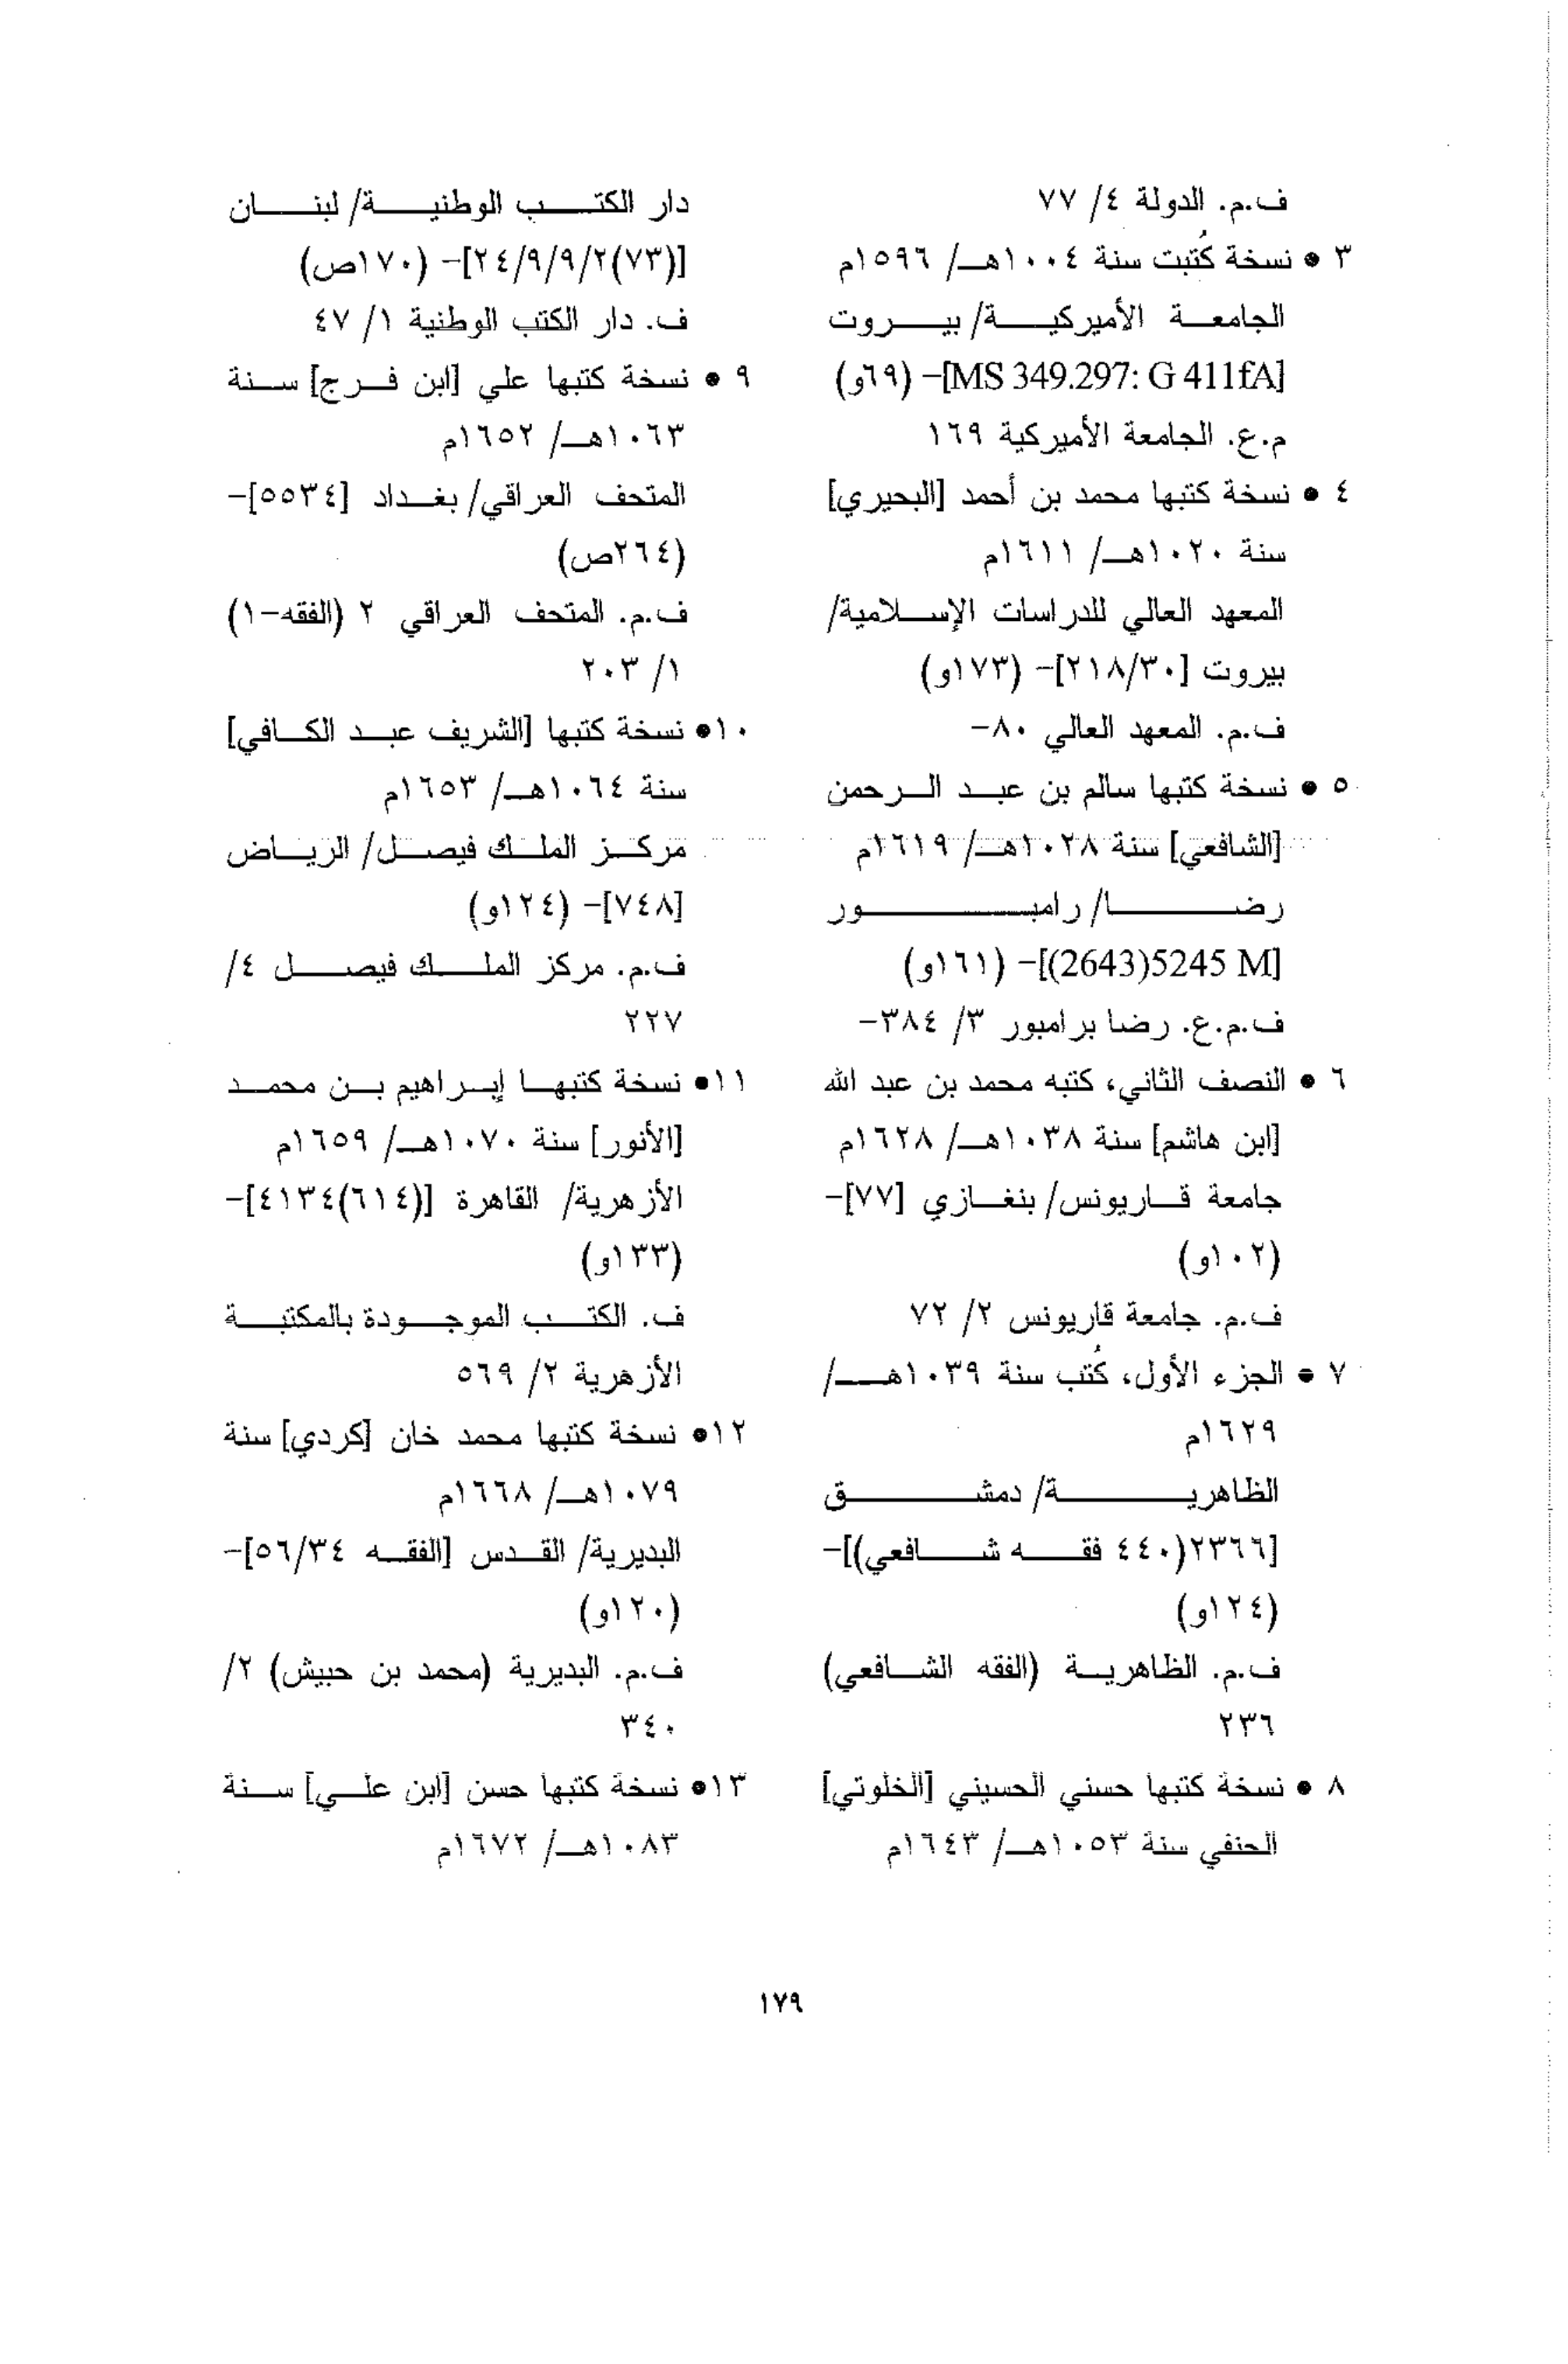 ف.م. الدولة ٤/ ٧٧
٣ • نسخة كُتبت سنة ١٠٠٤هـ/ ١٥٩٦م
الجامعة الأميركية/ بيروت
[MS 349.297: G 411fA]- (٦٩و)
م.ع. الجامعة الأميركية ١٦٩
٤ • نسخة كتبها محمد بن أحمد [البحيري]
سنة ١٠٢٠هـ/ ١٦١١م
المعهد العالي للدراسات الإسلامية/
بيروت [٢١٨/٣٠]- (١٧٣و)
ف.م. المعهد العالي ٨٠-
٥ • نسخة كتبها سالم بن عبد الرحمن
[الشافعي] سنة ١٠٢٨هـ/ ١٦١٩م
رضا/ رامبور
[5245 M(2643)]- (١٦١و)
ف.م.ع. رضا برامبور ٣/ ٣٨٤-
٦ • النصف الثاني، كتبه محمد بن عبد الله
[ابن هاشم] سنة ١٠٣٨هـ/ ١٦٢٨م
جامعة قاريونس/ بنغازي [٧٧]-
(١٠٢و)
ف.م. جامعة قاريونس ٢/ ٧٢
٧ • الجزء الأول، كُتب سنة ١٠٣٩هـ/
١٦٢٩م
الظاهرية/ دمشق
[٢٣٦٦(٤٤٠ فقه شافعي)]-
(١٢٤و)
ف.م. الظاهرية (الفقه الشافعي)
٢٣٦
٨ • نسخة كتبها حسني الحسيني [الخلوتي]
الحنفي سنة ١٠٥٣هـ/ ١٦٤٣م
دار الكتب الوطنية/ لبنان
[(٧٣)٢٤/٩/٩/٢]- (١٧٠ص)
ف. دار الكتب الوطنية ١/ ٤٧
٩ • نسخة كتبها علي [ابن فرج] سنة
١٠٦٣هـ/ ١٦٥٢م
المتحف العراقي/ بغداد [٥٥٣٤]-
(٢٦٤ص)
ف.م. المتحف العراقي ٢ (الفقه-١)
١/ ٢٠٣
١٠• نسخة كتبها [الشريف عبد الكافي]
سنة ١٠٦٤هـ/ ١٦٥٣م
مركز الملك فيصل/ الرياض
[٧٤٨]- (١٢٤و)
ف.م. مركز الملك فيصل ٤/
٢٢٧
١١• نسخة كتبها إبراهيم بن محمد
[الأنور] سنة ١٠٧٠هـ/ ١٦٥٩م
الأزهرية/ القاهرة [(٦١٤)٤١٣٤]-
(١٣٣و)
ف. الكتب الموجودة بالمكتبة
الأزهرية ٢/ ٥٦٩
١٢• نسخة كتبها محمد خان [كردي] سنة
١٠٧٩هـ/ ١٦٦٨م
البديرية/ القدس [الفقه ٥٦/٣٤]-
(١٢٠و)
ف.م. البديرية (محمد بن حبيش) ٢/
٣٤٠
١٣• نسخة كتبها حسن [ابن علي] سنة
١٠٨٣هـ/ ١٦٧٢م
١٧٩